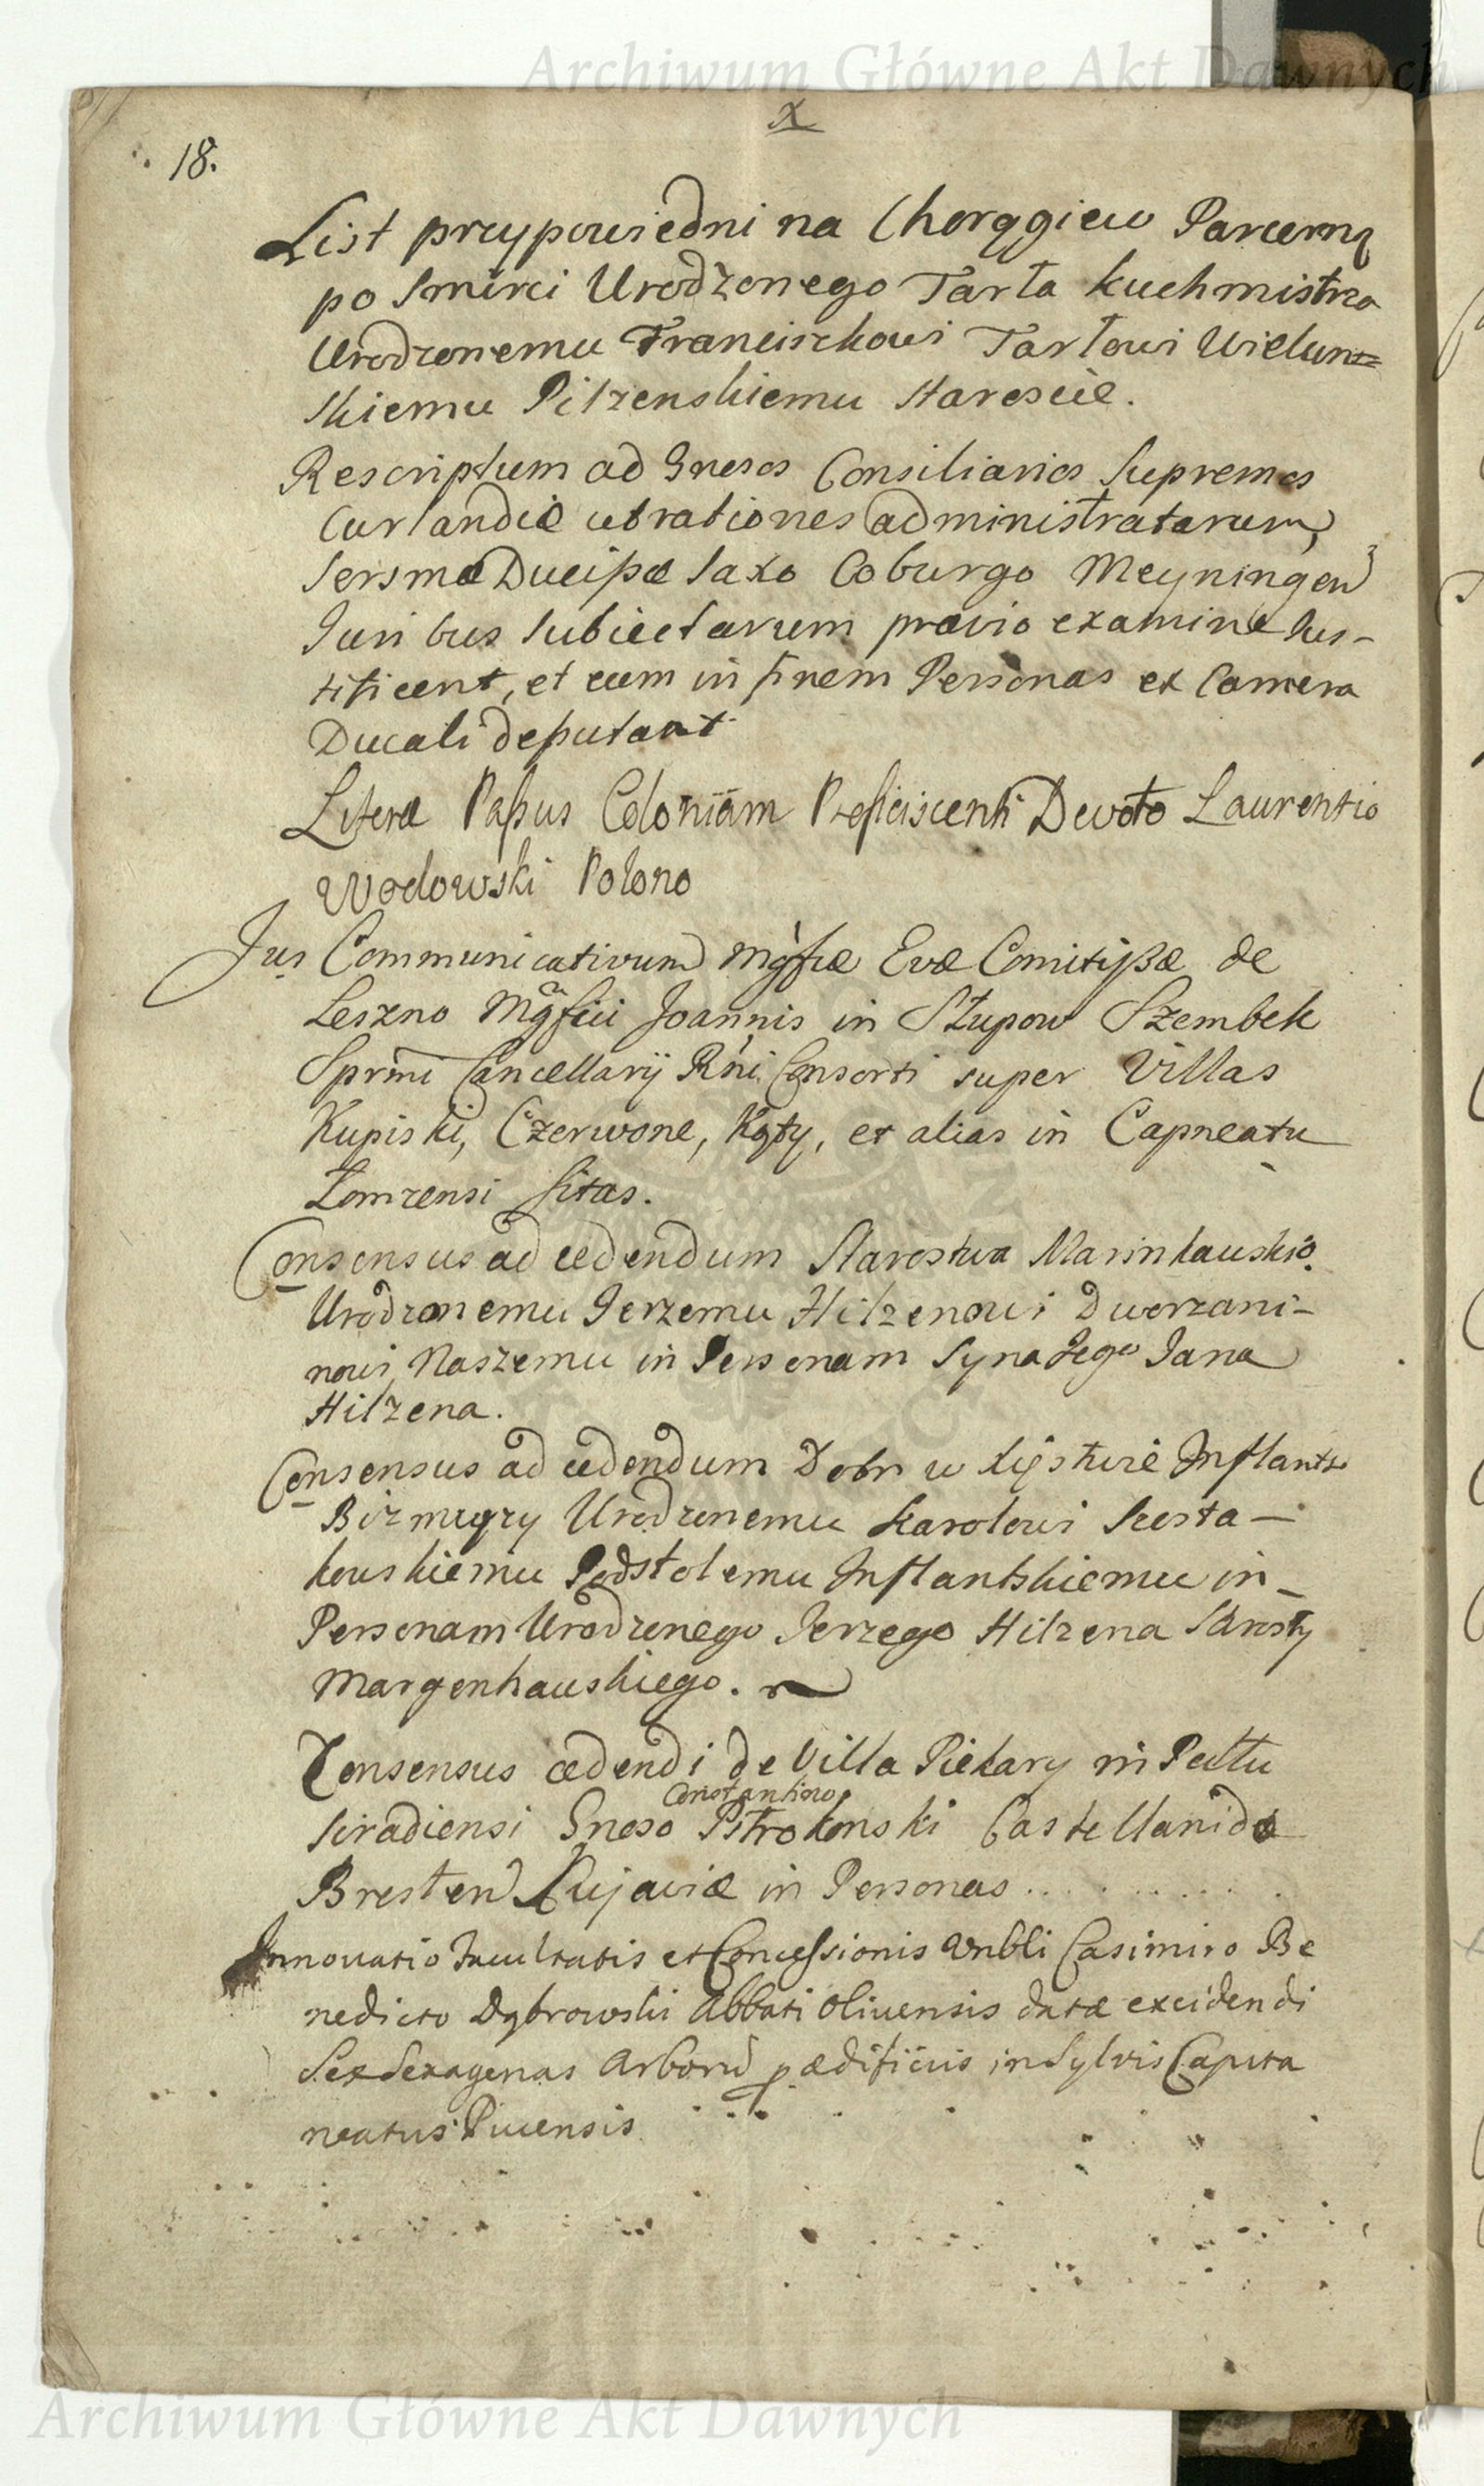 Archiwum Główne Akt Dawnych
X
18.
List przypowiedni na Chorągiew Pancerną
po Smirci Urodzonego Tarła kuchmistrza
Urodzonemu Franciszkowi Tarłowi Wielun=
skiemu Pilzenskiemu Staroscie.
Rescriptum ad Gnesos Consiliarios Supremos
Curlandiæ ut rationes administratarum
Sersmæ Ducipæ Saxo Coburgo Meyningen
Juribus Subiectarum prævio examine Jus-
tificent, et eum in finem Personas ex Camera
Ducali deputant
Literæ Passus Coloniam Proficiscenti Devoto Laurentio
Wodowski Polono
Jus Communicativum Mgfcæ Evæ Comitissæ de
Leszno Mgfici Joannis in Słupow Szembek
Sprmi Cancellarij Rni Consorti super Villas
Kupiski, Czerwone, Kąty, et alias in Capneatu
Łomzensi sitas.
Consensus ad cedendum Starostwa Marinhauskio.
Urodzonemu Jerzemu Hilzenowi Dworzani-
nowi Naszemu in Personam Syna Jego Jana
Hilzena.
Consensus ad cedendum Dobr w Xięstwie Inflants
Urodzonemu Karolowi Szosta-
kowskiemu Podstolemu Inflantskiemu in-
Personam Urodzonego Jerzego Hilzena Starosty
Margenhauskiego.
Consensus cedendi de Villa Piekary in Pttu
Constantino
Siradiensi Gneso Pstrokonski Castellanidæ
Bresten Cujaviæ in Personas . . . . . . . . .
Innovatio Facultatis et Concessionis Vnbli Casimiro Be
nedicto Dąbrowski Abbati Olivensis datæ excidendi
Sex Sexagenas Arborũ p ædificiis in Sylvis Capita
neatus Pucensis
Archiwum Główne Akt Dawnych